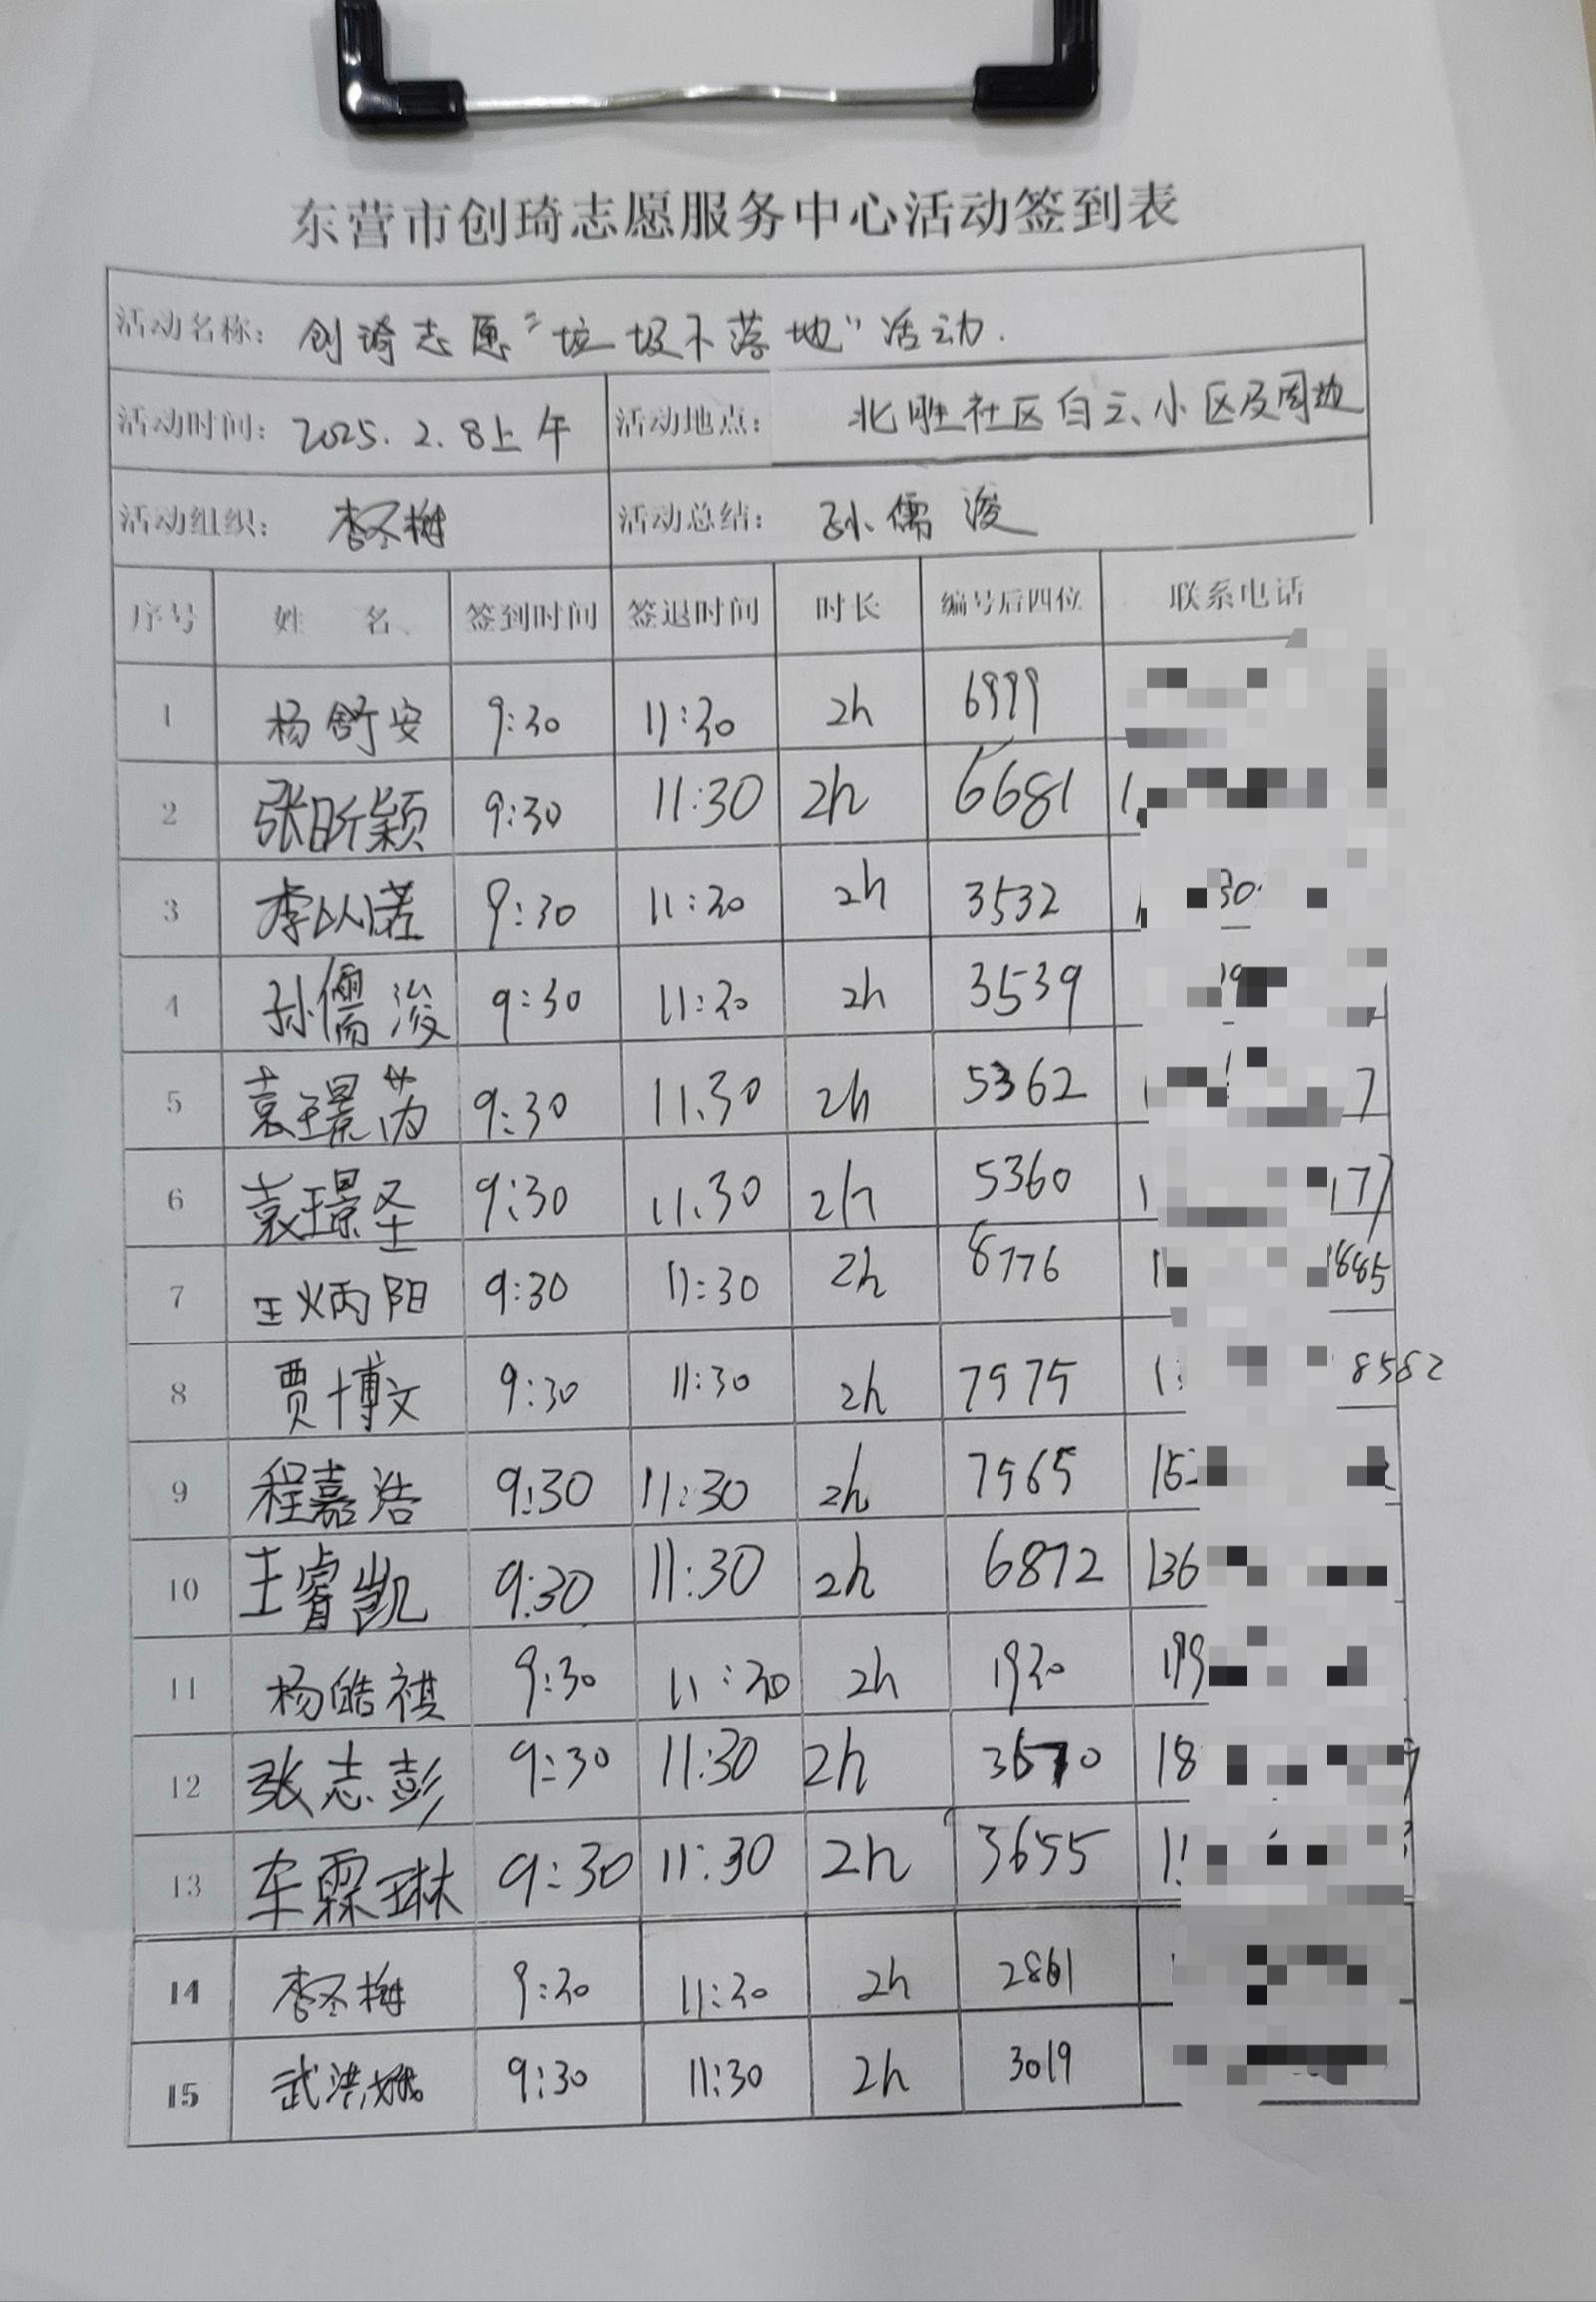 东营市创琦志愿服务中心活动签到表
活动名称: 创琦志愿“垃圾不落地”活动.
活动时间: 2025.2.8上午 活动地点: 北胜社区白云小区及周边
活动组织: 李冬梅 活动总结: 孙儒浚
序号 姓名、 签到时间 签退时间 时长 编号后四位 联系电话
1 杨舒安 9:30 11:30 2h 6999
2 张昕颖 9:30 11:30 2h 6681 1
3 李以诺 9:30 11:30 2h 3532 30
4 孙儒浚 9:30 11:30 2h 3539
5 袁璟芮 9:30 11.30 2h 5362 7
6 袁璟圣 9:30 11.30 2h 5360 1 177
7 王炳阳 9:30 11:30 2h 8776 1 885
8 贾博文 9:30 11:30 2h 7975 1 8582
9 程嘉浩 9:30 11:30 2h 7965 15
10 王睿凯 9:30 11:30 2h 6872 136
11 杨皓祺 9:30 11:30 2h 1930 199
12 张志彭 9:30 11:30 2h 3570 18
13 车霖琳 9:30 11:30 2h 3655 1
14 李冬梅 9:30 11:30 2h 2861
15 武洪 9:30 11:30 2h 3019